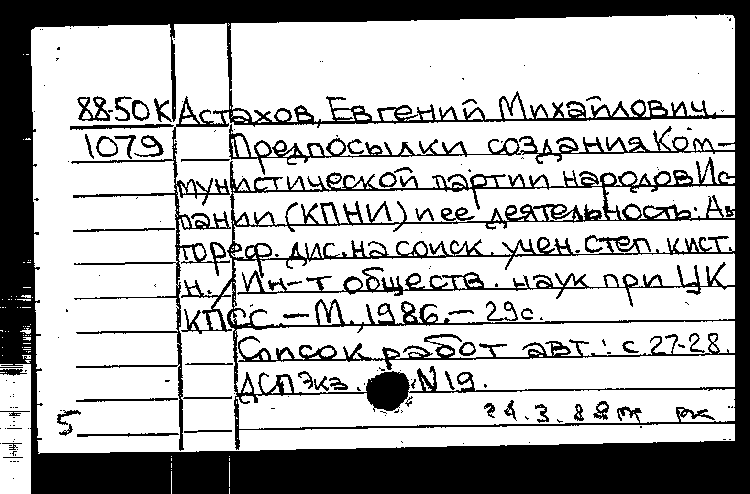 88-50К Астахов, Евгений Михайлович.
1079 Предпосылки создания Ком-
мунистической партии народов Ис-
пании (КПНИ) и ее деятельность: Ав-
тореф. дис. на соиск. учен. степ. к.ист.
н. / Ин-т обществ. наук при ЦК
КПСС. — М., 1986. — 29с.
Список работ авт.: с. 27-28.
ДСП. Экз. N 19.
5 24.3.88